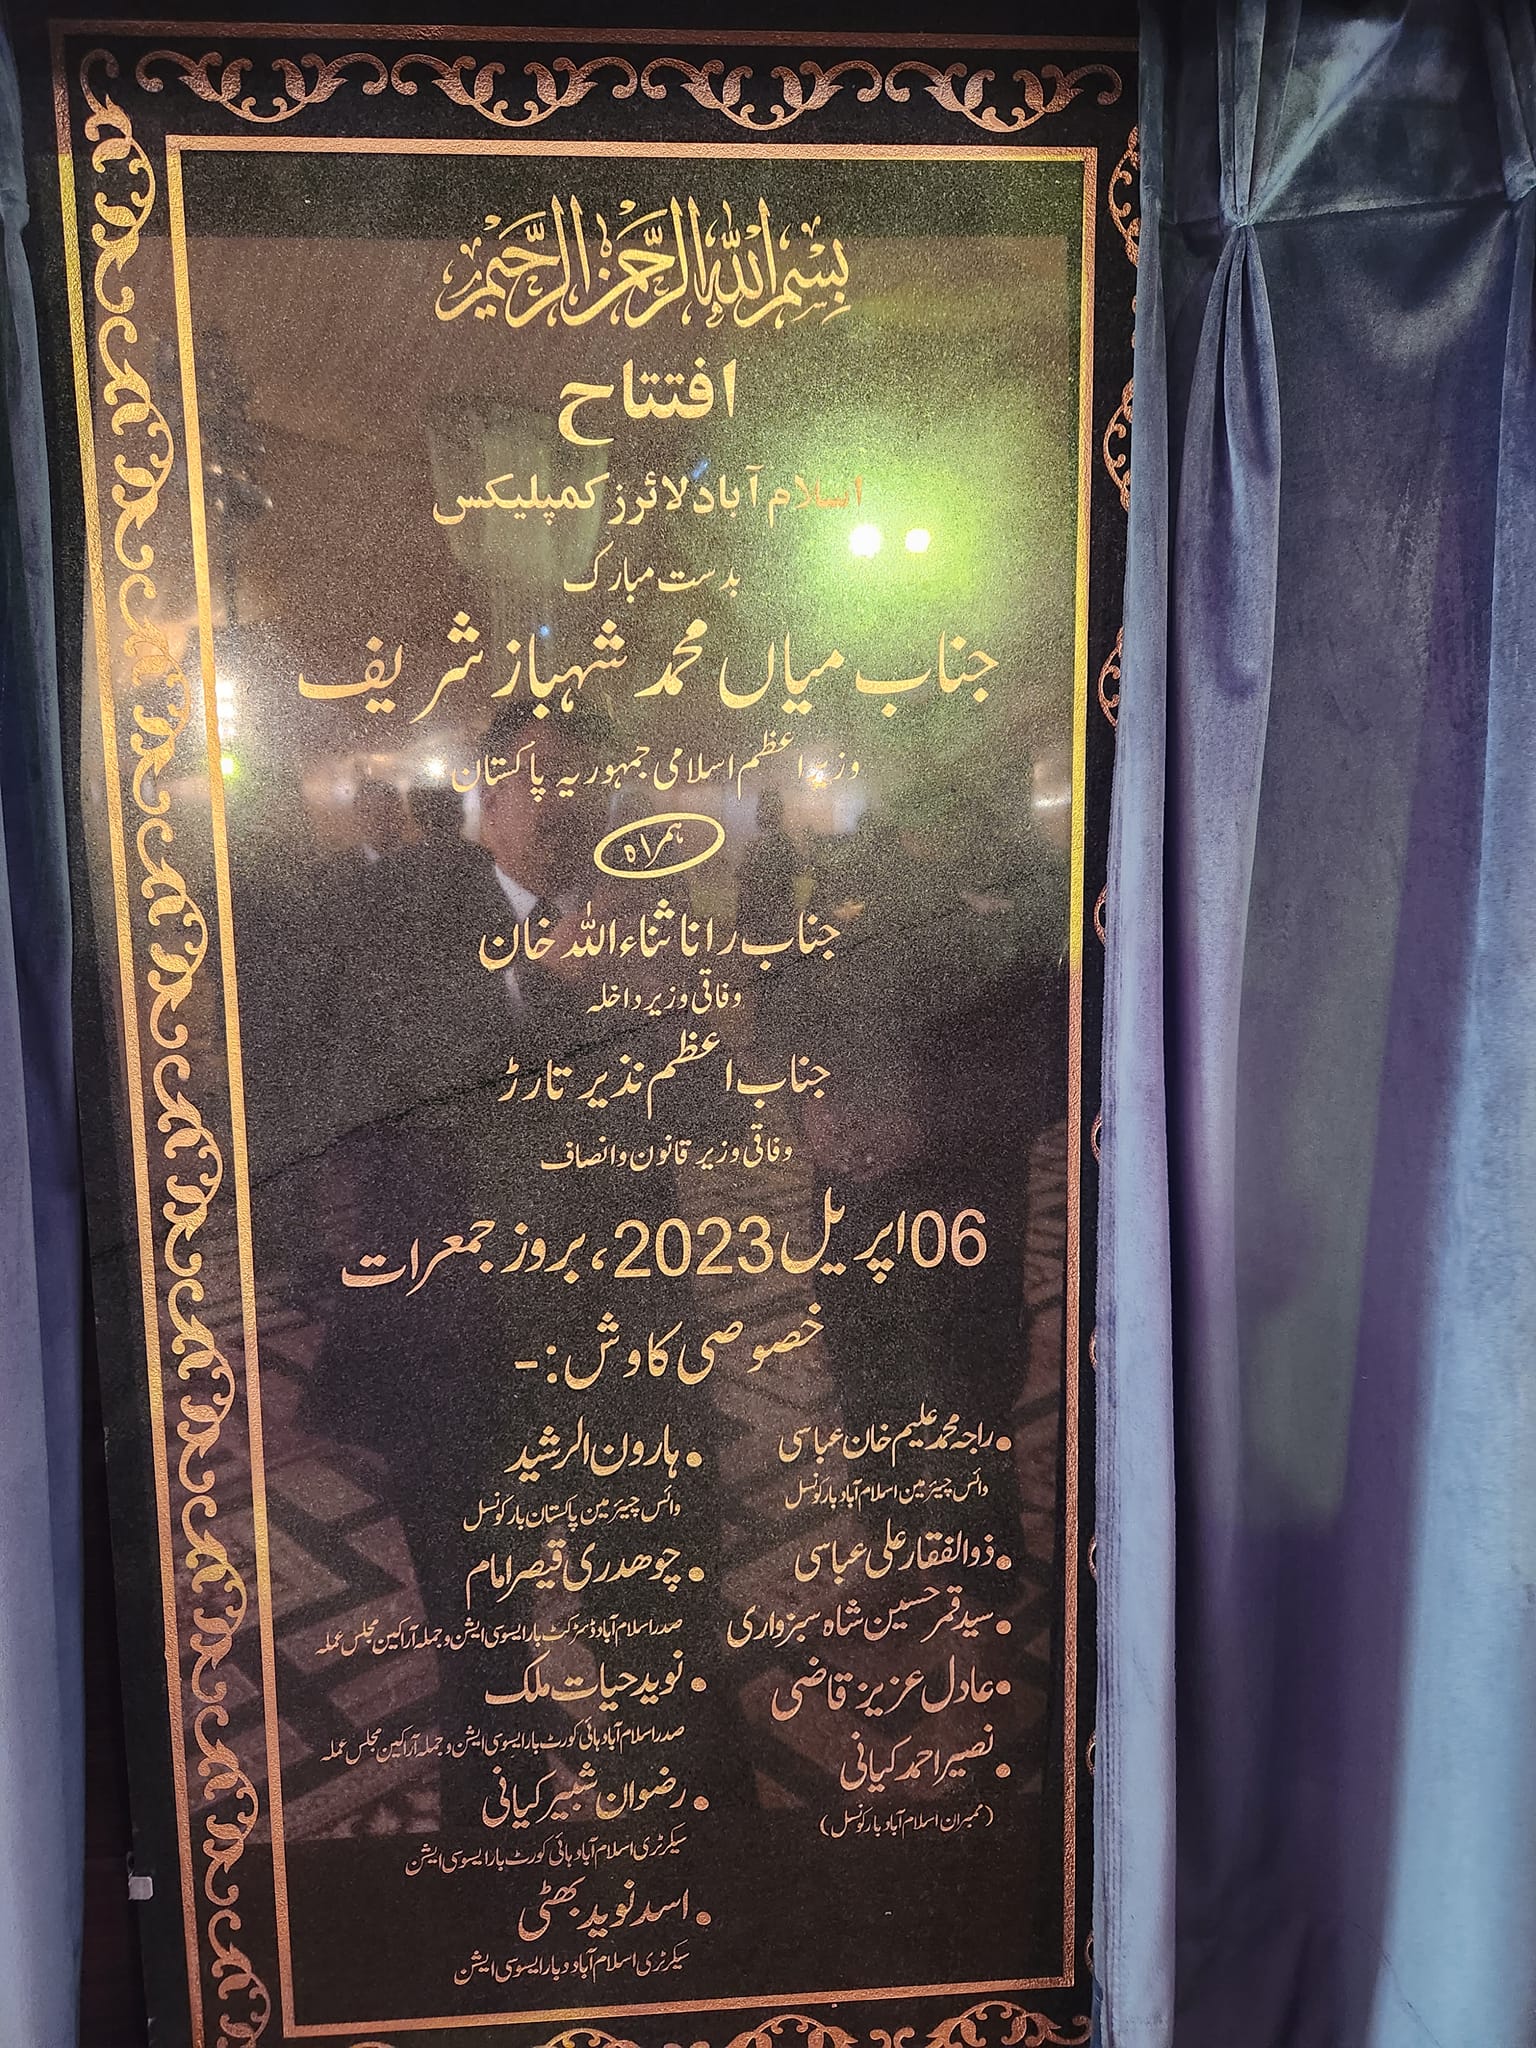 بسم اللہ الرحمن الرحیم
افتتاح
اسلام آباد لائرز کمپلیکس
بدست مبارک
جناب میاں محمد شہباز شریف
وزیراعظم اسلامی جمہوریہ پاکستان
ہمراہ
جناب رانا ثناء اللہ خان
وفاقی وزیر داخلہ
جناب اعظم نذیر تارڑ
وفاقی وزیر قانون و انصاف
06 اپریل 2023، بروز جمعرات
خصوصی کاوش :-
• راجہ محمد علیم خان عباسی
وائس چیئرمین اسلام آباد بار کونسل
• ذوالفقار علی عباسی
• سید قمر حسین شاہ سبزواری
• عادل عزیز قاضی
• نصیر احمد کیانی
(ممبران اسلام آباد بار کونسل)
• ہارون الرشید
وائس چیئرمین پاکستان بار کونسل
• چوھدری قیصر امام
صدر اسلام آباد ڈسٹرکٹ بار ایسوسی ایشن و جملہ آراکین مجلس عملہ
• نوید حیات ملک
صدر اسلام آباد ہائی کورٹ بار ایسوسی ایشن و جملہ آراکین مجلس عملہ
• رضوان شبیر کیانی
سیکرٹری اسلام آباد ہائی کورٹ بار ایسوسی ایشن
• اسد نوید بھٹی
سیکرٹری اسلام آباد بار ایسوسی ایشن